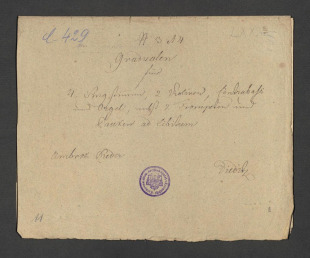 d 429
№ 3 et 4
Gradualen
für
4 Singstimmen, 2 Violinen, Contrabaß
und Orgel, nebst 2 Trompeten und
Pauken ad libitum
Ambros Rieder
11